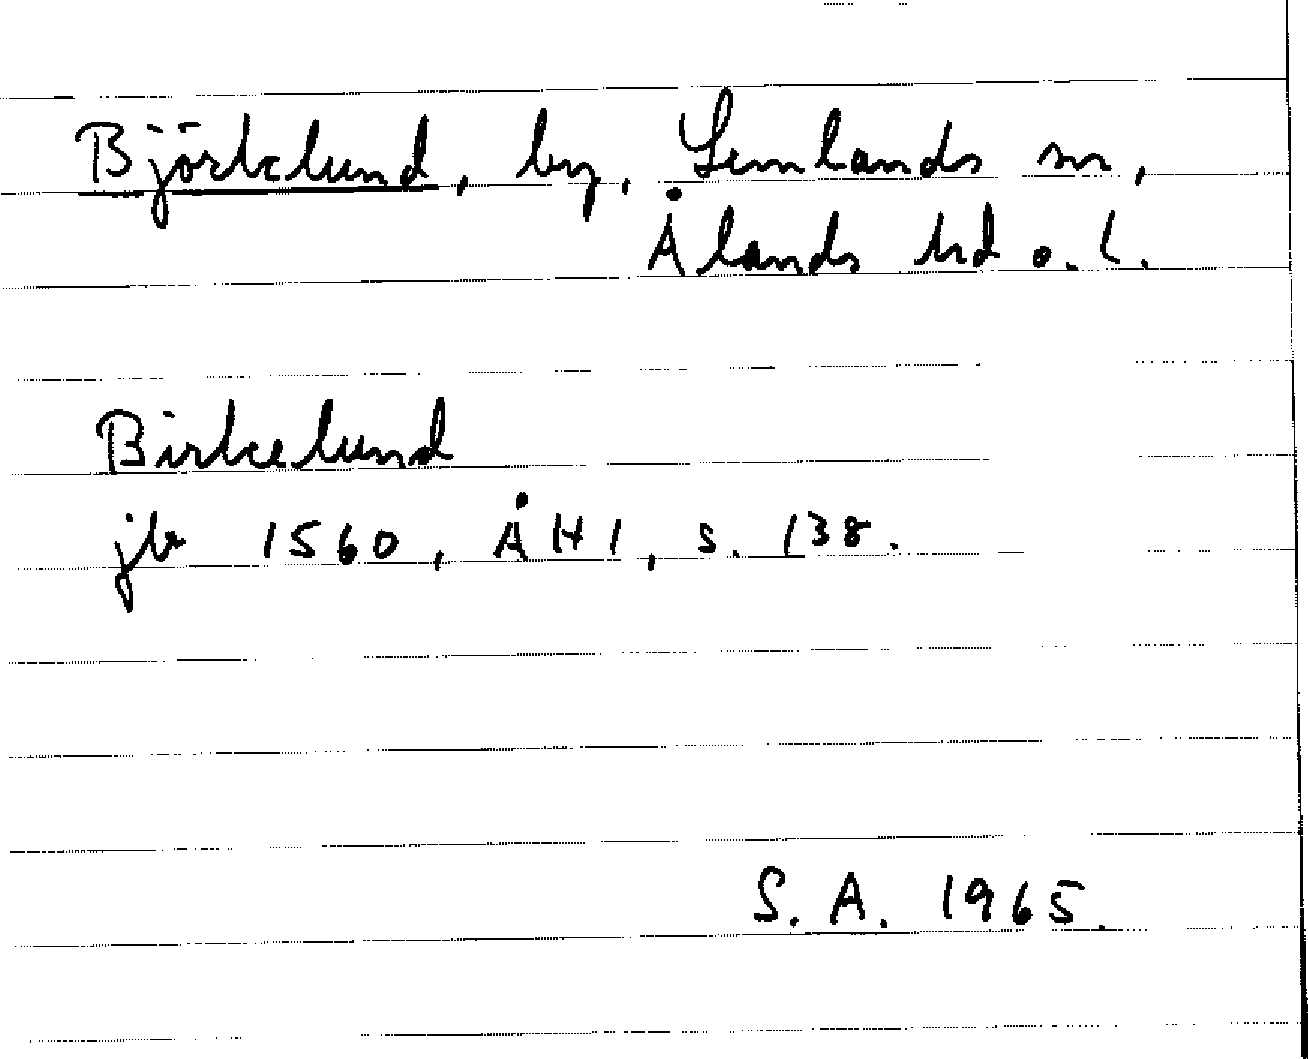 Björklund, by, Lemlands sn,
Ålands hd o. l.
Birkelund
jb 1560, ÅH 1, s. 138.
S. A. 1965.